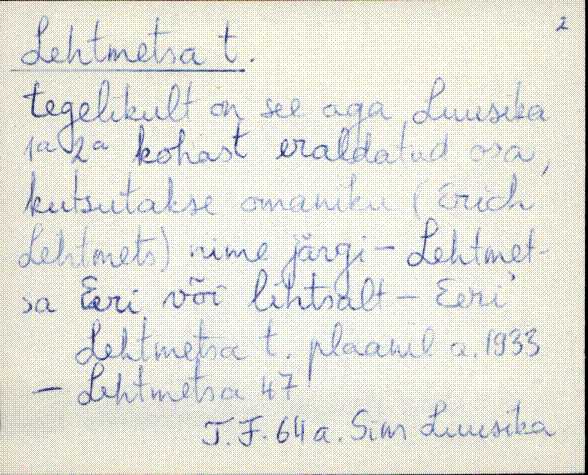 2
Lehtmetsa t.
tegelikult on see aga Luusika
1a 2a kohast eraldatud osa,
kutsutakse omaniku (Erich
Lehtmets) nime järgi - Lehtmet-
sa Eeri või lihtsalt - Eeri
Lehtmetsa t. plaanil a. 1933
- Lehtmetsa 47
J.F. 64 a. Sims Luusika